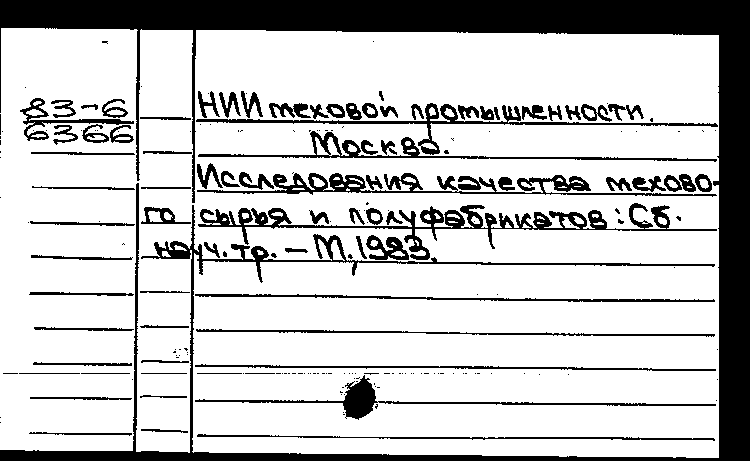 83-6
6366
НИИ меховой промышленности.
Москва.
Исследования качества мехово-
го сырья и полуфабрикатов: Сб.
науч. тр. – М., 1983.